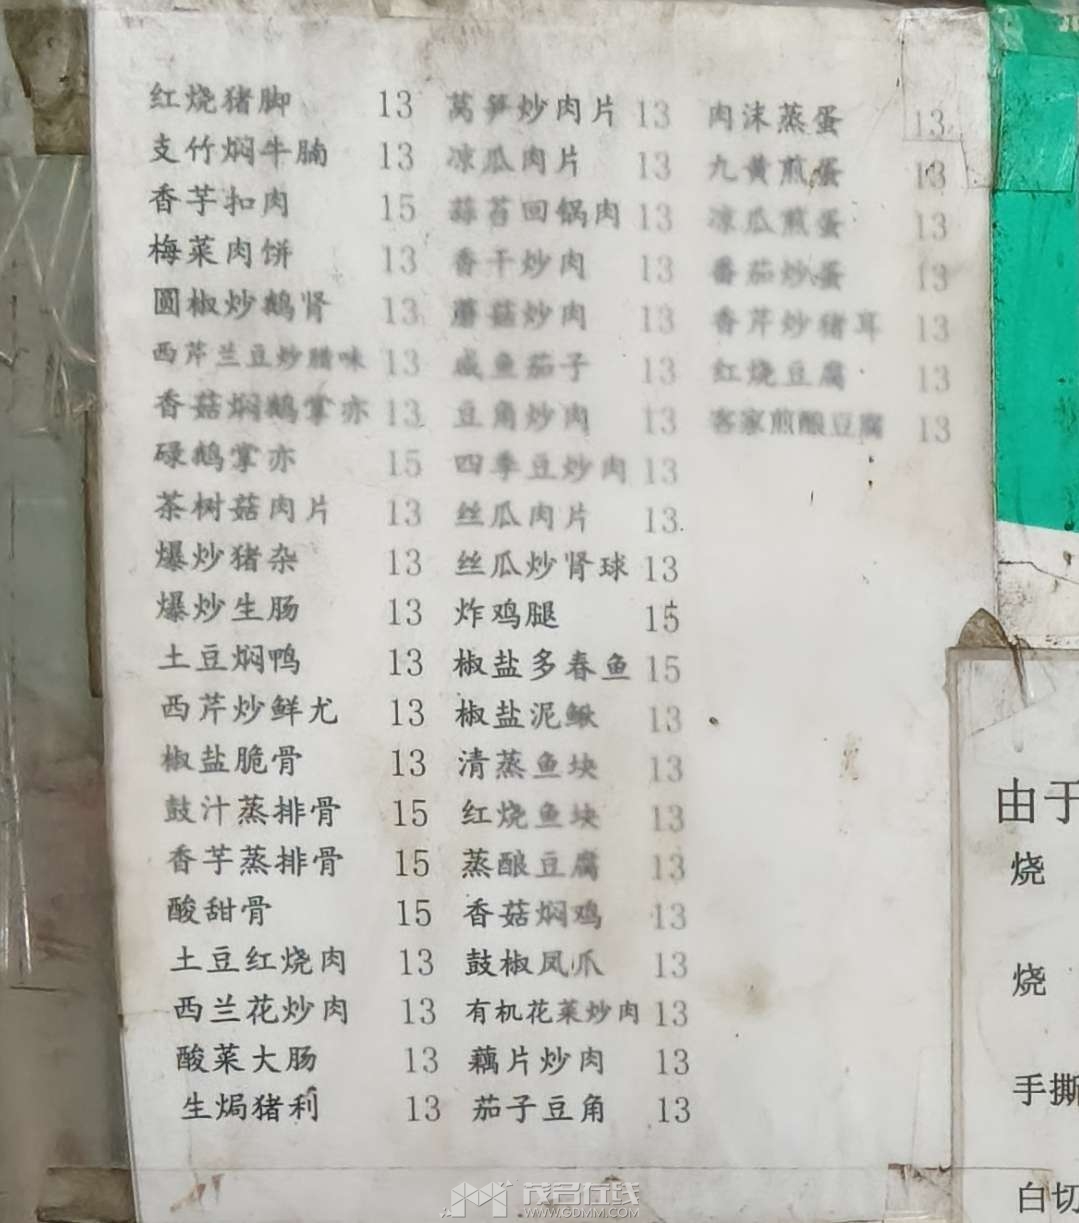 红烧猪脚 13
支竹焖牛腩 13
香芋扣肉 15
梅菜肉饼 13
圆椒炒鹅肾 13
西芹兰豆炒腊味 13
香菇焖鹅掌亦 13
碌鹅掌亦 15
茶树菇肉片 13
爆炒猪杂 13
爆炒生肠 13
土豆焖鸭 13
西芹炒鲜尤 13
椒盐脆骨 13
鼓汁蒸排骨 15
香芋蒸排骨 15
酸甜骨 15
土豆红烧肉 13
西兰花炒肉 13
酸菜大肠 13
生焗猪利 13
莴笋炒肉片 13
凉瓜肉片 13
蒜苔回锅肉 13
香干炒肉 13
蘑菇炒肉 13
咸鱼茄子 13
豆角炒肉 13
四季豆炒肉 13
丝瓜肉片 13
丝瓜炒肾球 13
炸鸡腿 15
椒盐多春鱼 15
椒盐泥鳅 13
清蒸鱼块 13
红烧鱼块 13
蒸酿豆腐 13
香菇焖鸡 13
鼓椒凤爪 13
有机花菜炒肉 13
藕片炒肉 13
茄子豆角 13
肉沫蒸蛋 13
九黄煎蛋 13
凉瓜煎蛋 13
番茄炒蛋 13
香芹炒猪耳 13
红烧豆腐 13
客家煎酿豆腐 13
由于
烧
烧
手撕
白切
茂名在线
WWW.GDMM.COM